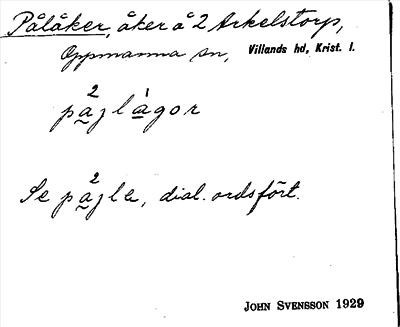 Pålåker, åker å 2 Arkelstorp,
Oppmanna sn, Villands hd, Krist. l.
pa̲²jlà̲gor
Se på²jla, dial. ordsfört.
JOHN SVENSSON 1929